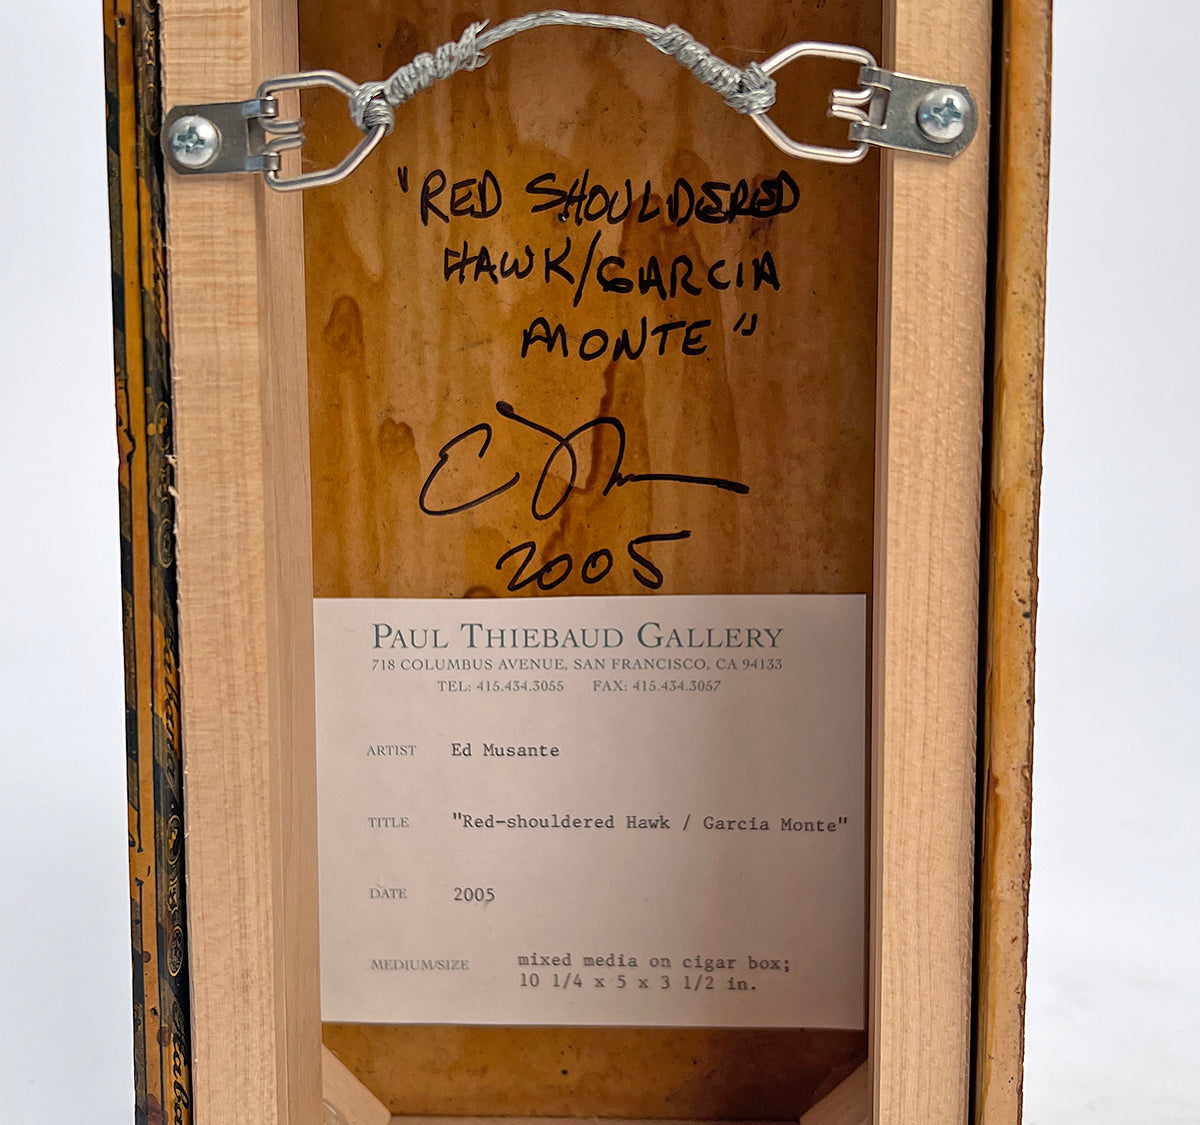 "RED SHOULDERED
HAWK/GARCIA
MONTE"
2005
PAUL THIEBAUD GALLERY
718 COLUMBUS AVENUE, SAN FRANCISCO, CA 94133
TEL: 415.434.3055 FAX: 415.434.3057
ARTIST Ed Musante
TITLE "Red-shouldered Hawk / Garcia Monte"
DATE 2005
MEDIUM/SIZE mixed media on cigar box;
10 1/4 x 5 x 3 1/2 in.